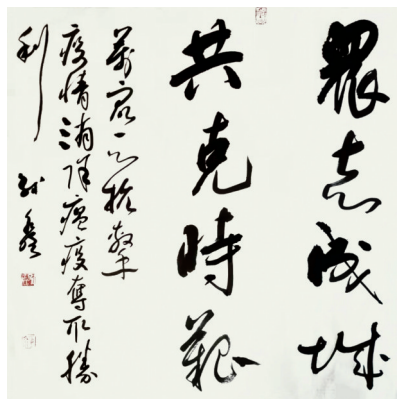 眾志成城
共克時艱
萬眾一心抗擊
疫情消除瘟疫奪取勝
利